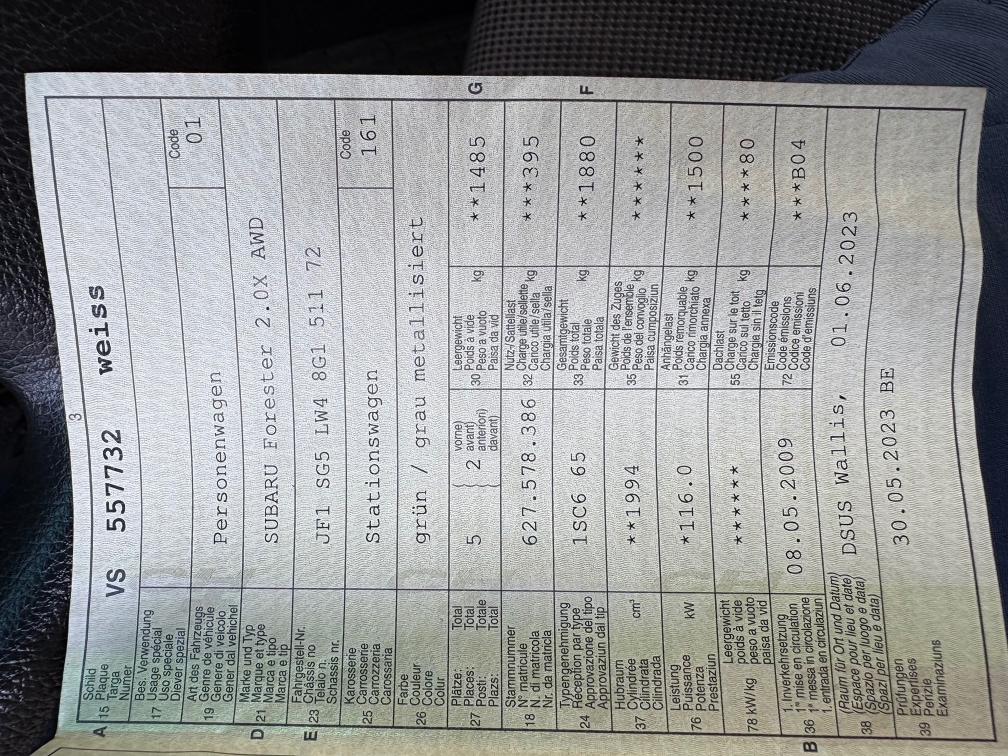 3
A 15 Schild
Plaque
Targa
Numer
VS 557732 weiss
17 Bes. Verwendung
Usage spécial
Uso speciale
Diever spezial
19 Art des Fahrzeugs
Genre de véhicule
Genere di veicolo
Gener dal vehichel
Personenwagen
Code
01
D 21 Marke und Typ
Marque et type
Marca e tipo
Marca e tip
SUBARU Forester 2.0X AWD
E 23 Fahrgestell-Nr.
Châssis no
Telaio n.
Schassis nr.
JF1 SG5 LW4 8G1 511 72
25 Karosserie
Carrosserie
Carrozzeria
Carossaria
Stationswagen
Code
161
26 Farbe
Couleur
Colore
Colur
grün / grau metallisiert
27 Plätze: Total
Places: Total
Posti: Totale
Plazs: Total
5 2 vorne)
avant)
anteriori)
davant)
30 Leergewicht
Poids à vide
Peso a vuoto
Paisa da vid
kg **1485 G
18 Stammnummer
N° matricule
N. di matricola
Nr. da matricla
627.578.386
32 Nutz-/Sattellast
Charge utile/sellette
Carico utile/sella
Chargia utila/sella
kg ***395
24 Typengenehmigung
Réception par type
Approvazione del tipo
Approvaziun dal tip
1SC6 65
33 Gesamtgewicht
Poids total
Peso totale
Paisa totala
kg **1880 F
37 Hubraum
Cylindrée
Cilindrata
Cilindrada
cm³ **1994
35 Gewicht des Zuges
Poids de l'ensemble
Peso del convoglio
Paisa cumposiziun
kg ******
76 Leistung
Puissance
Potenza
Prestaziun
kW *116.0
31 Anhängelast
Poids remorquable
Carico rimorchiato
Chargia annexa
kg **1500
78 kW/kg Leergewicht
poids à vide
peso a vuoto
paisa da vid
*******
55 Dachlast
Charge sur le toit
Carico sul tetto
Chargia sin il tetg
kg ****80
B 36 1. Inverkehrsetzung
1re mise en circulation
1a messa in circolazione
1. entrada en circulaziun
08.05.2009
72 Emissionscode
Code émissions
Codice emissioni
Code d'emissiuns
***B04
38 (Raum für Ort und Datum)
(Espace pour lieu et date)
(Spazio per luogo e data)
(Spazi per lieu e data)
DSUS Wallis, 01.06.2023
39 Prüfungen
Expertises
Perizie
Examinaziuns
30.05.2023 BE